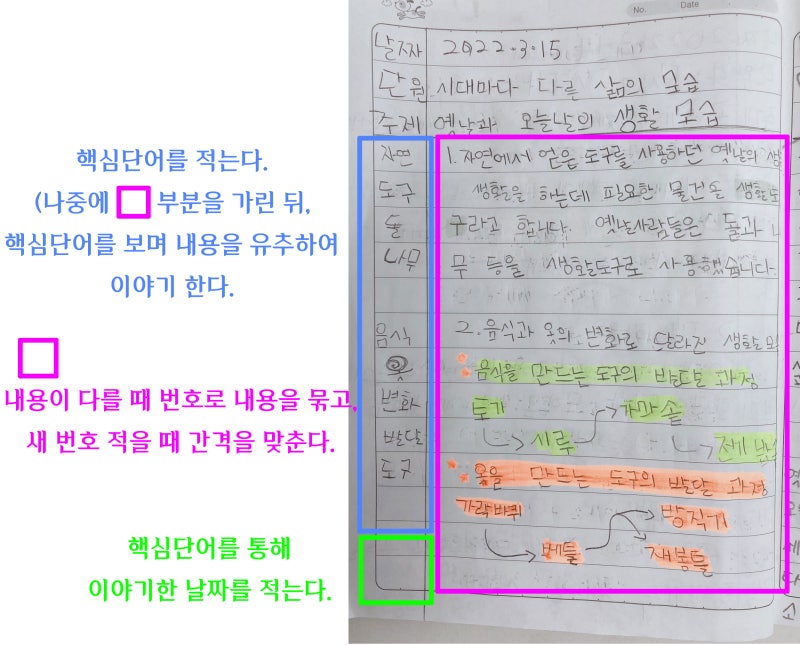 핵심단어를 적는다.
(나중에 부분을 가린 뒤,
핵심단어를 보며 내용을 유추하여
이야기 한다.
내용이 다를 때 번호로 내용을 묶고,
새 번호 적을 때 간격을 맞춘다.
핵심단어를 통해
이야기한 날짜를 적는다.
No. Date
날짜 2022.3.15
단원 시대마다 다른 삶의 모습
주제 옛날과 오늘날의 생활 모습
자연 1. 자연에서 얻은 도구를 사용하던 옛날의
도구 생활을 하는데 필요한 물건을 생활도
돌 구라고 합니다. 옛날사람들은 돌과 나
나무 무 등을 생활도구로 사용했습니다.
음식 2. 음식과 옷의 변화로 달라진 생활
옷 음식을 만드는 도구의 발달 과정
변화 토기 가마솥
발달 시루 전기
도구 옷을 만드는 도구의 발달 과정
가락바퀴 방직기
베틀 재봉틀